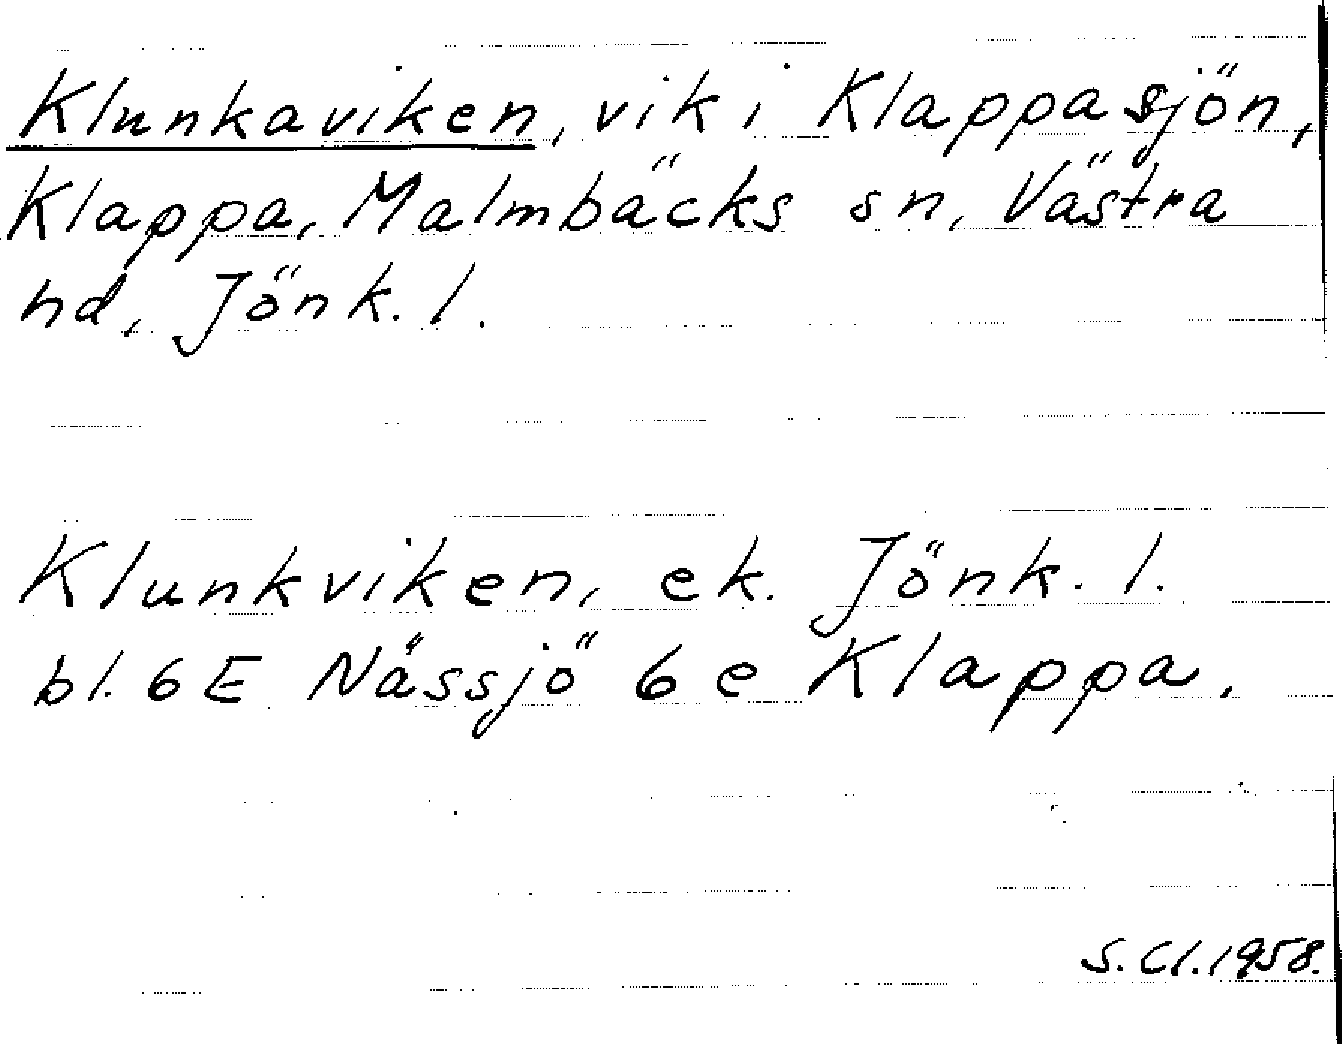 Klunkaviken, vik i Klappasjön,
Klappa, Malmbäcks sn, Västra
hd, Jönk. l.
Klunkviken, ek. Jönk. l.
bl. 6E Nässjö 6e Klappa.
S. Cl. 1958.